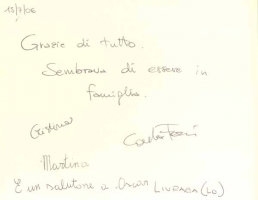 15/7/06
Grazie di tutto.
Sembrava di essere in
famiglia.
Cristina
Martina
E un salutone a Oscar LIVRAGA (LO)